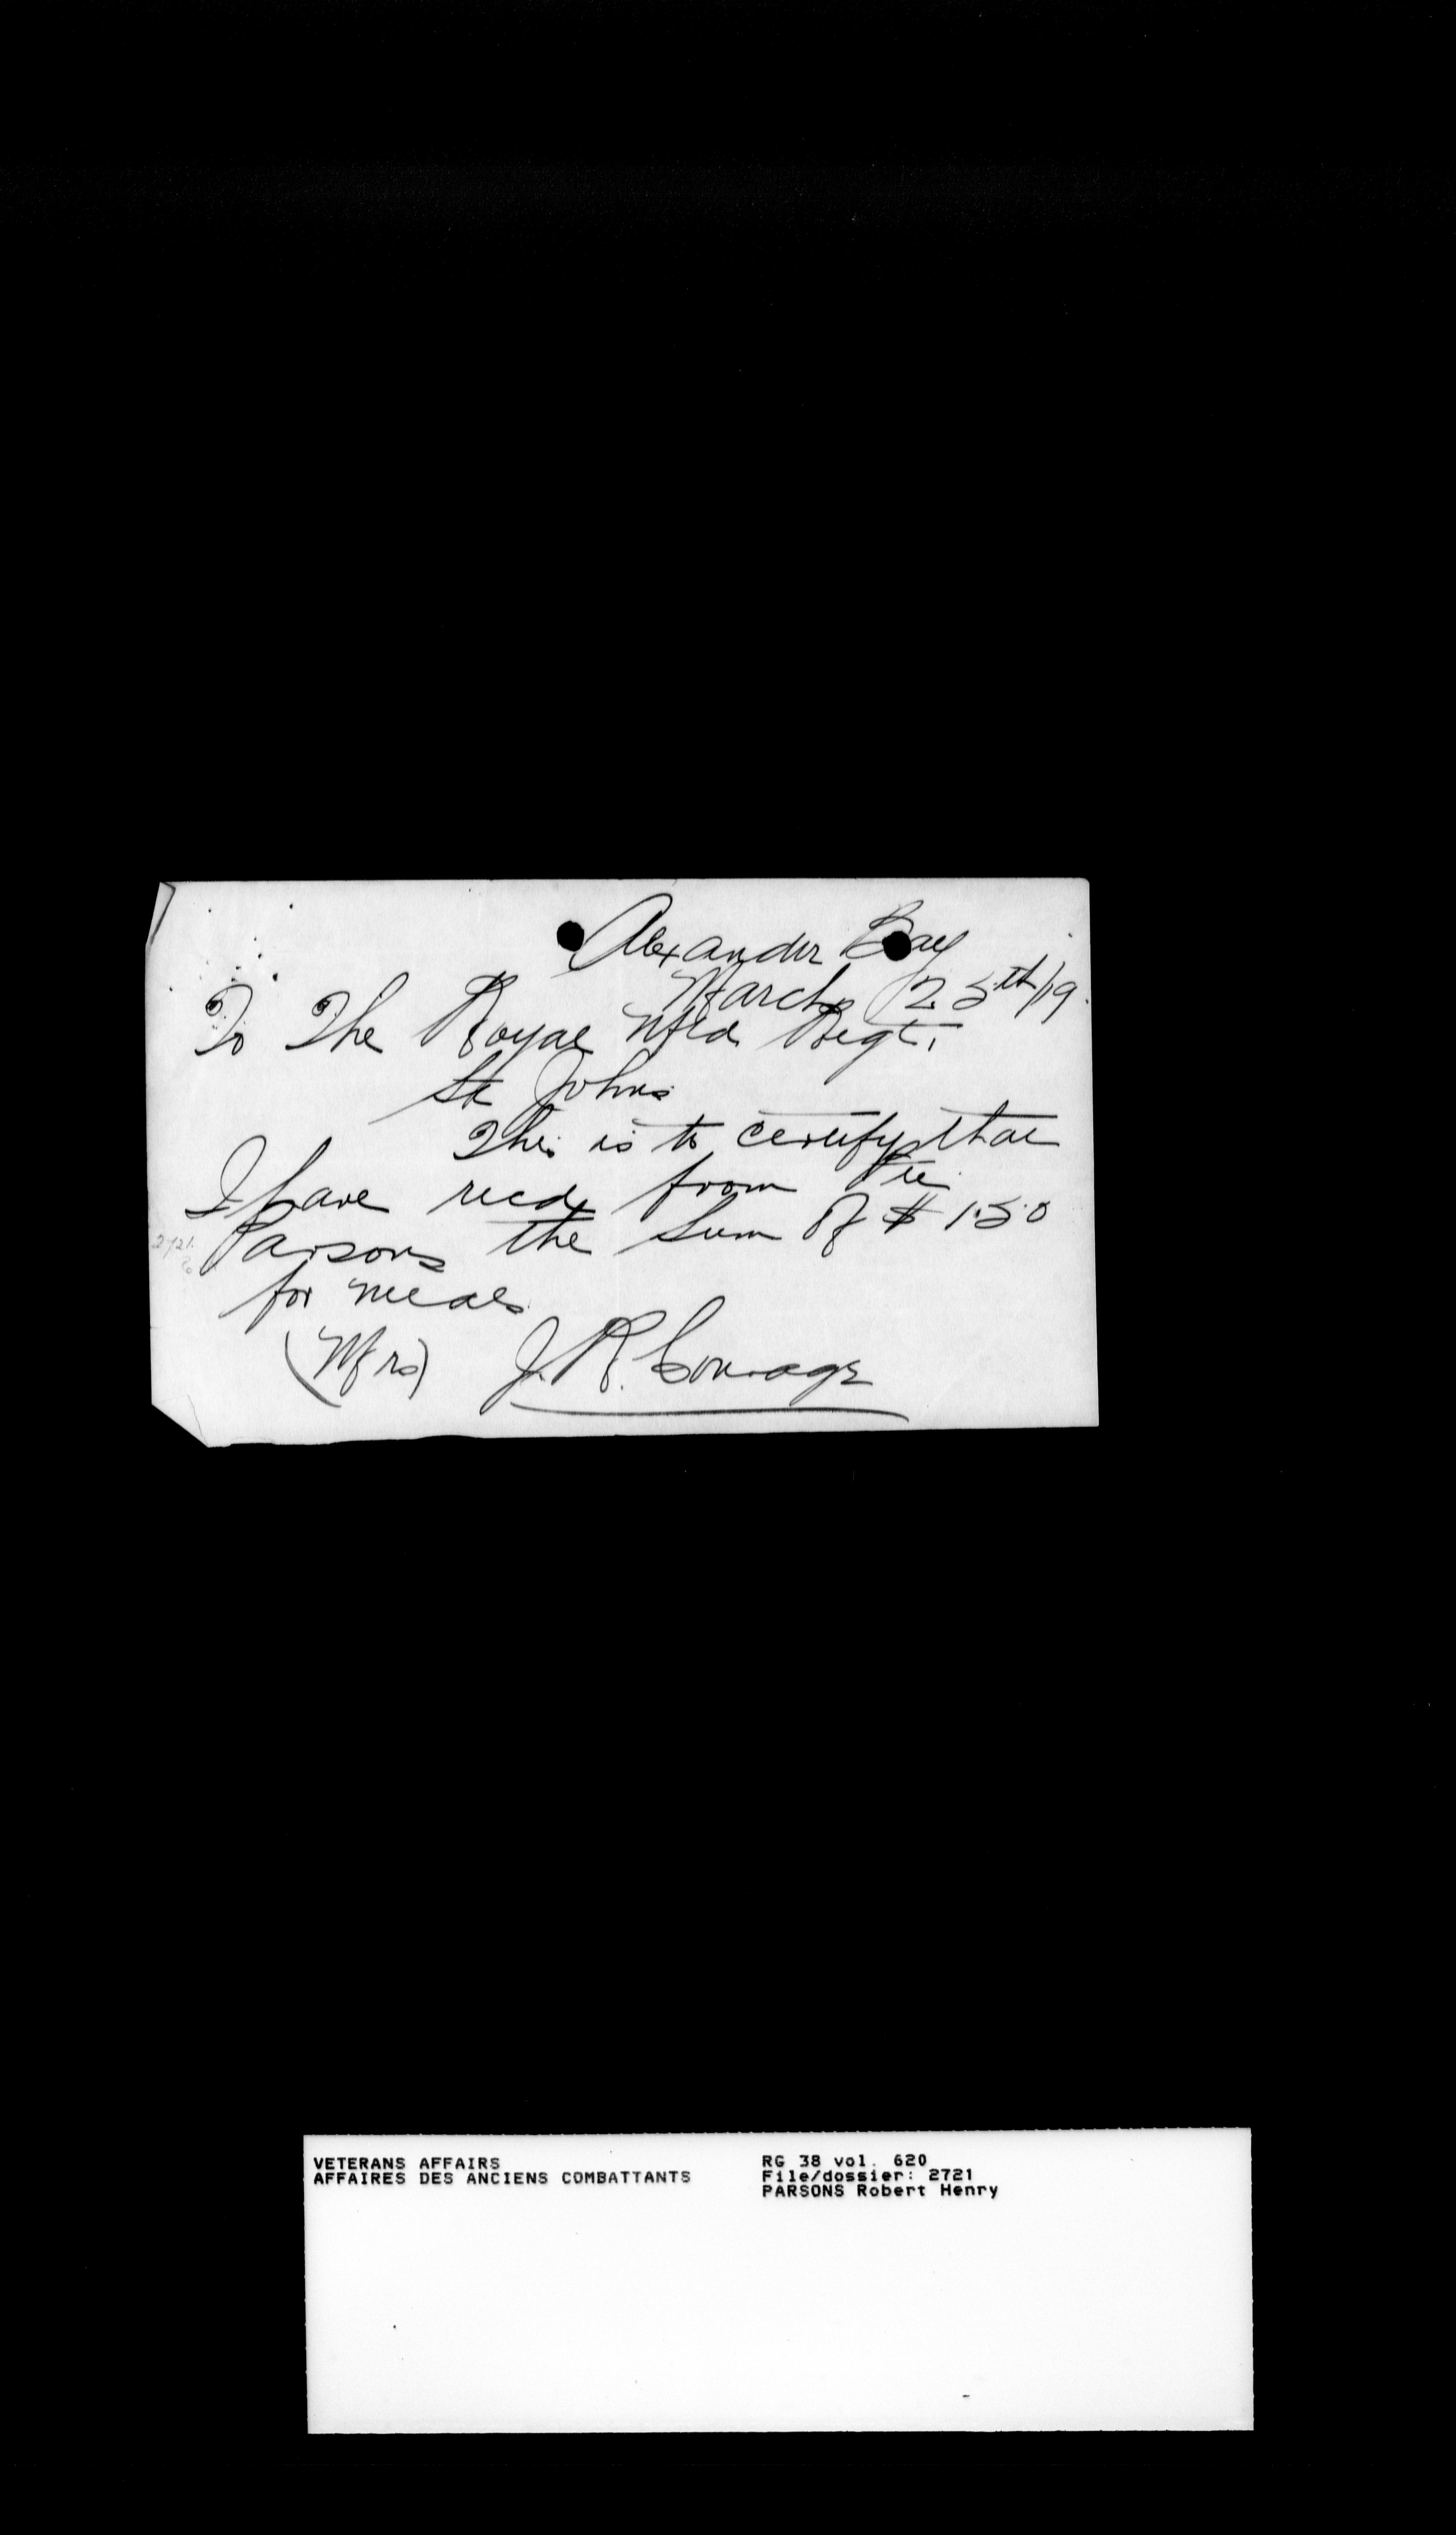 Alexander Bay
March 25th/19.
To The Royal Nfld Regt.
St Johns
This is to certify that
I have recd from Pte
Parsons the Sum of $1.50
2721
for meals
(Mrs) J. R.
VETERANS AFFAIRS
AFFAIRES DES ANCIENS COMBATTANTS
RG 38 vol. 620
File/dossier: 2721
PARSONS Robert Henry